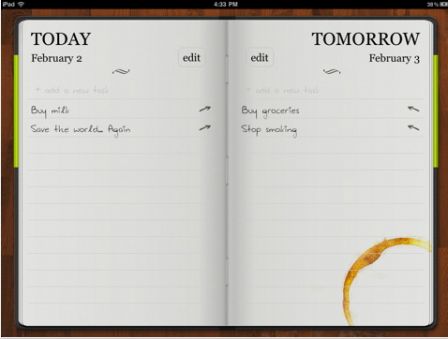 iPod
4:33 PM
38%
TODAY
February 2
edit
+ add a new task
Buy milk
Save the world... Again
TOMORROW
edit
February 3
+ add a new task
Buy groceries
Stop smoking